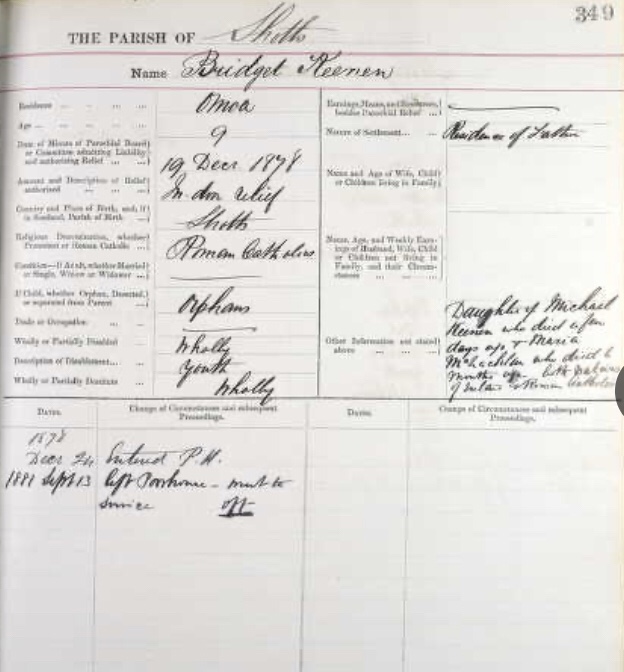 349
THE PARISH OF Shotts
Name Bridget Keenen
Residence
Omoa
Age
9
Date of Minute of Parochial Board
or Committee admitting Liability
and authorizing Relief
19 Decr 1878
Amount and Description of Relief
authorised
In-door relief
Country and Place of Birth, and, if
in Scotland, Parish of Birth
Shotts
Religious Denomination, whether
Protestant or Roman Catholic
Roman Catholic
Condition—If Adult, whether Married
or Single, Widow or Widower
If Child, whether Orphan, Deserted,
or separated from Parent
Orphans
Trade or Occupation
Wholly or Partially Disabled
Wholly
Description of Disablement
Youth
Wholly or Partially Destitute
Wholly
Earnings, Means, and Resources,
besides Parochial Relief
Nature of Settlement
Residence of Father
Name and Age of Wife, Child
or Children living in Family
Name, Age, and Weekly Earn-
ings of Husband, Wife, Child
or Children not living in
Family, and their Circum-
stances
Other Information not stated
above
Daughter of Michael
Keenen who died a few
days ago & Maria
McLachlan who died 6
months ago both
of Roman Catholics
Dates.
Change of Circumstances and subsequent
Proceedings.
Dates.
Change of Circumstances and subsequent
Proceedings.
1878
Decr 24 Entered P.H.
1881 Sept 13 left Poorhouse – went to
service off